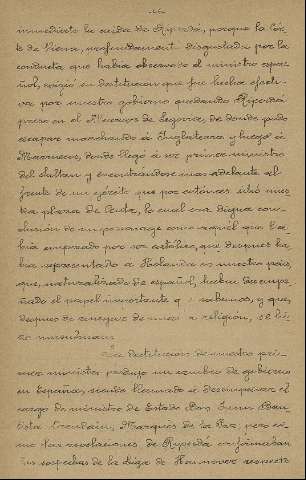 inmediato la caida de Riperdá, porque la Cór-
te de Viena, profundamente disgustada por la
conducta que habia observado el ministro espa-
ñol, exigió su destitucion que fue hecha efecti-
va por nuestro gobierno quedando Riperdá
preso en el Alcazar de Segovia, de donde pudo
escapar marchando á Inglaterra y luego á
Marruecos, donde llegó á ser primer ministro
del Sultan y encontrandose mas adelante al
frente de un ejército que por entonces sitió nues-
tra plaza de Ceuta, lo cual era digna con-
clusion de un personage como aquel que ha-
bia empezado por ser católico, que despues ha-
bia representado á Holanda en nuestro pais,
que, naturalizado de español, habia desempe-
ñado el papel importante q. sabemos, y que,
despues de renegar de nuevo la religion, se hi-
zo musulman.
La destitucion de nuestro pri-
mer ministro produjo un cambio de gobierno
en España, siendo llamado á desempeñar el
cargo de ministro de Estado Don Juan Bau-
tista Orendain, Marqués de la Paz, pero co-
mo las revelaciones de Riperdá confirmaban
las sospechas de la Liga de Hannover respecto